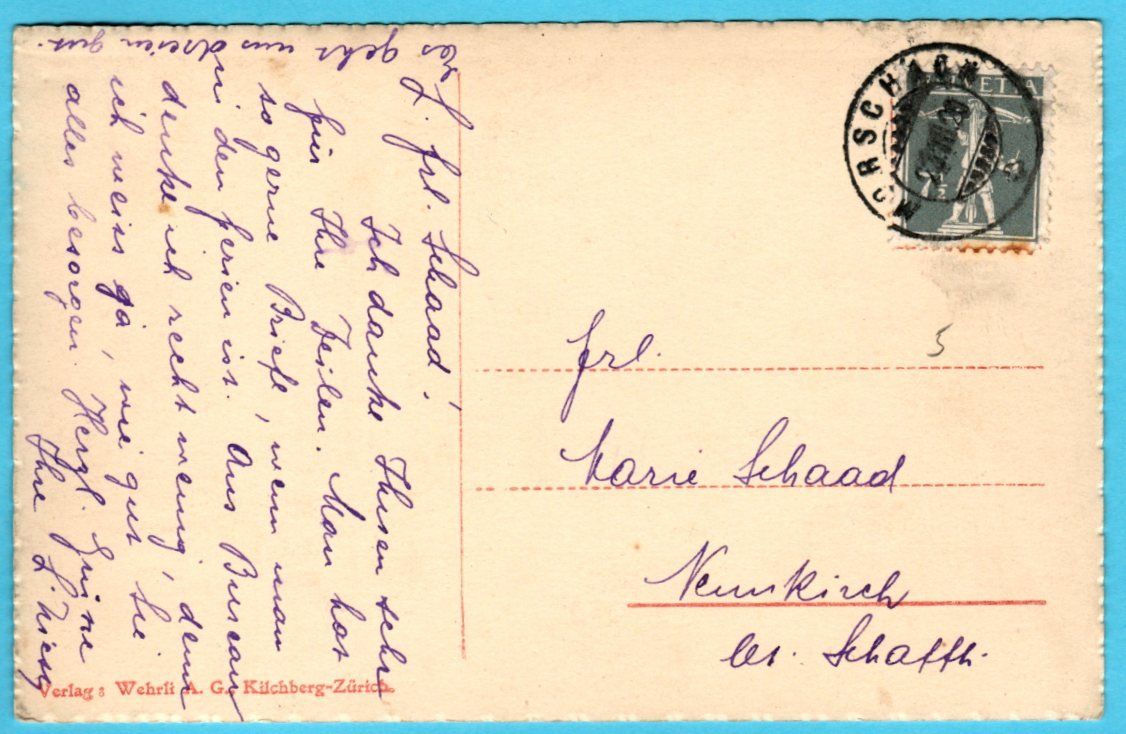 Es geht uns dreien gut.
L. Frl. Schaad!
Ich danke Ihnen sehr
für Ihre Zeilen. Man hat
so gerne Briefe, wenn man
in den Ferien ist. Ans Bureau
denke ich recht wenig, denn
ich weiss ja, wie gut Sie
alles besorgen. Herzl. Grüsse
Ihre
Verlag: Wehrli A. G., Kilchberg-Zürich.
MORSCHACH
HELVETIA
7½
5
Frl.
Marie Schaad
Neunkirch
bei Schaffh.